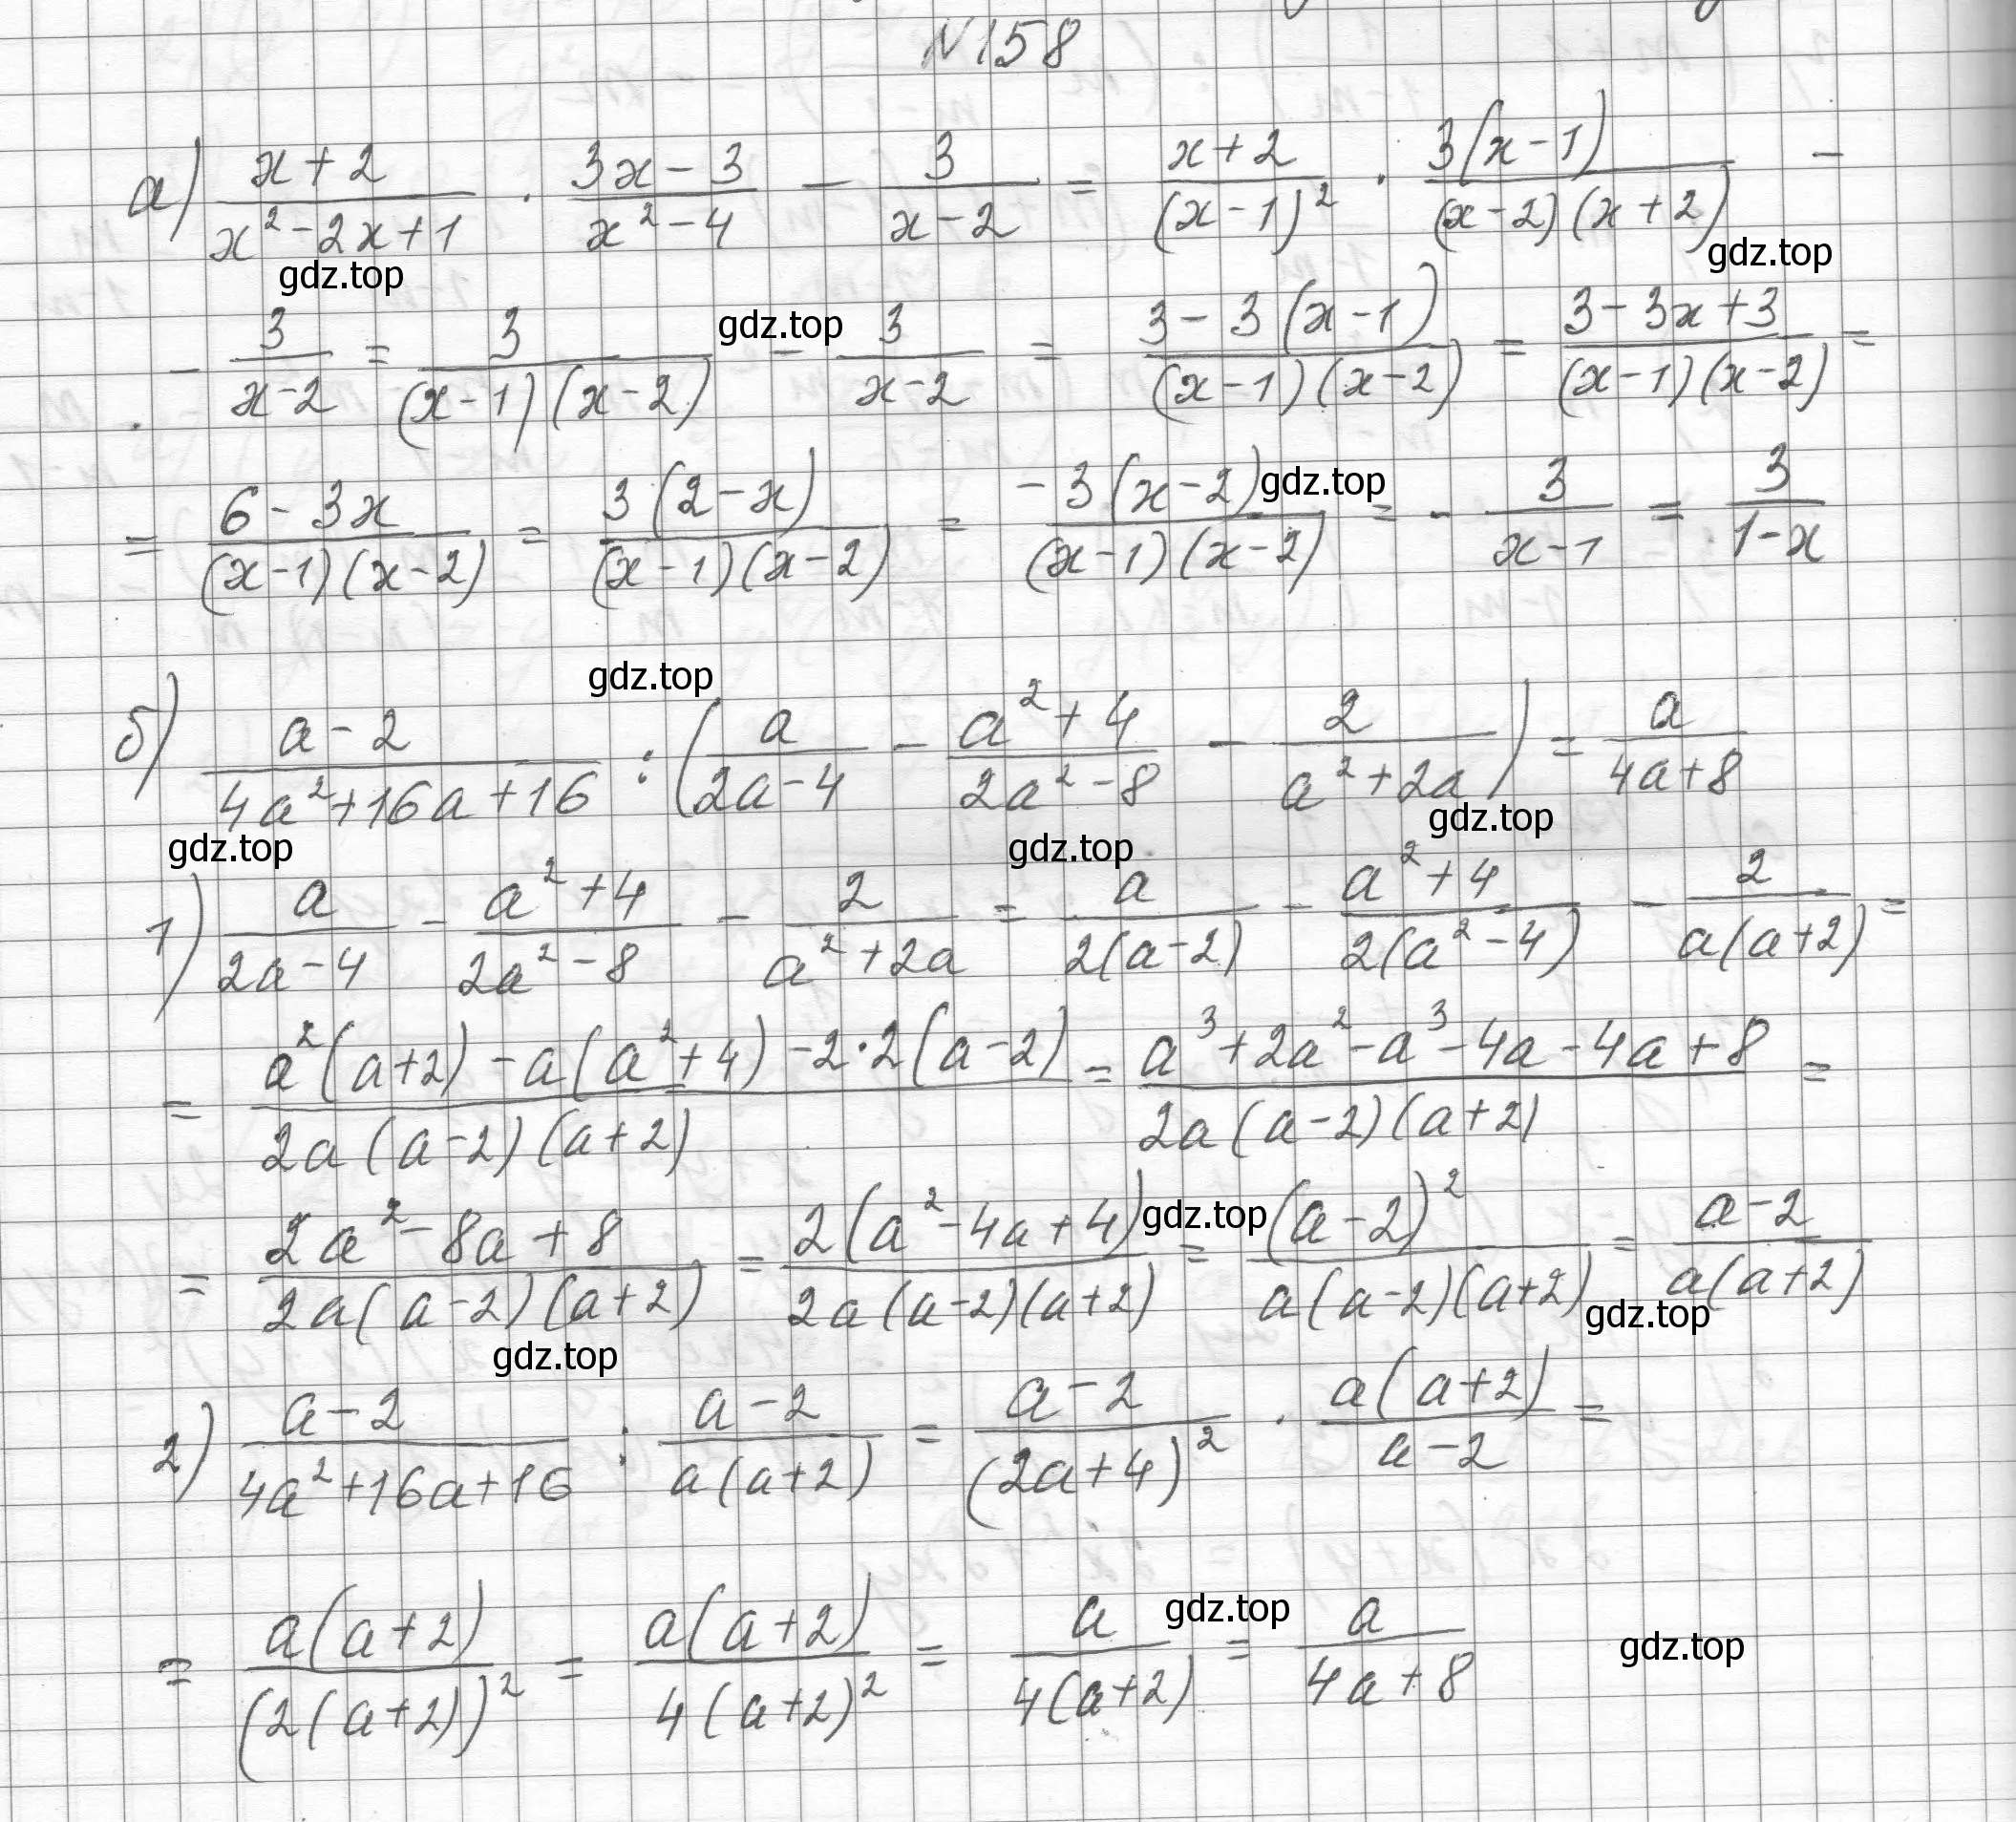 N158
а) (x+2)/(x²-2x+1) · (3x-3)/(x²-4) - 3/(x-2) = (x+2)/(x-1)² · 3(x-1)/((x-2)(x+2)) -
gdz.top gdz.top
- 3/(x-2) = 3/((x-1)(x-2)) - 3/(x-2) = (3-3(x-1))/((x-1)(x-2)) = (3-3x+3)/((x-1)(x-2)) =
gdz.top
= (6-3x)/((x-1)(x-2)) = 3(2-x)/((x-1)(x-2)) = -3(x-2)/((x-1)(x-2)) = - 3/(x-1) = 3/(1-x)
gdz.top
gdz.top
б) (a-2)/(4a²+16a+16) : (a/(2a-4) - (a²+4)/(2a²-8) - 2/(a²+2a)) = a/(4a+8)
gdz.top gdz.top gdz.top
1) a/(2a-4) - (a²+4)/(2a²-8) - 2/(a²+2a) = a/(2(a-2)) - (a²+4)/(2(a²-4)) - 2/(a(a+2)) =
= (a²(a+2)-a(a²+4)-2·2(a-2))/(2a(a-2)(a+2)) = (a³+2a²-a³-4a-4a+8)/(2a(a-2)(a+2) =
= (2a²-8a+8)/(2a(a-2)(a+2)) = 2(a²-4a+4)/(2a(a-2)(a+2)) = (a-2)²/(a(a-2)(a+2)) = (a-2)/(a(a+2))
gdz.top gdz.top gdz.top
2) (a-2)/(4a²+16a+16) : (a-2)/(a(a+2)) = (a-2)/(2a+4)² · a(a+2)/(a-2) =
= a(a+2)/(2(a+2))² = a(a+2)/(4(a+2)²) = a/(4(a+2)) = a/(4a+8)
gdz.top gdz.top